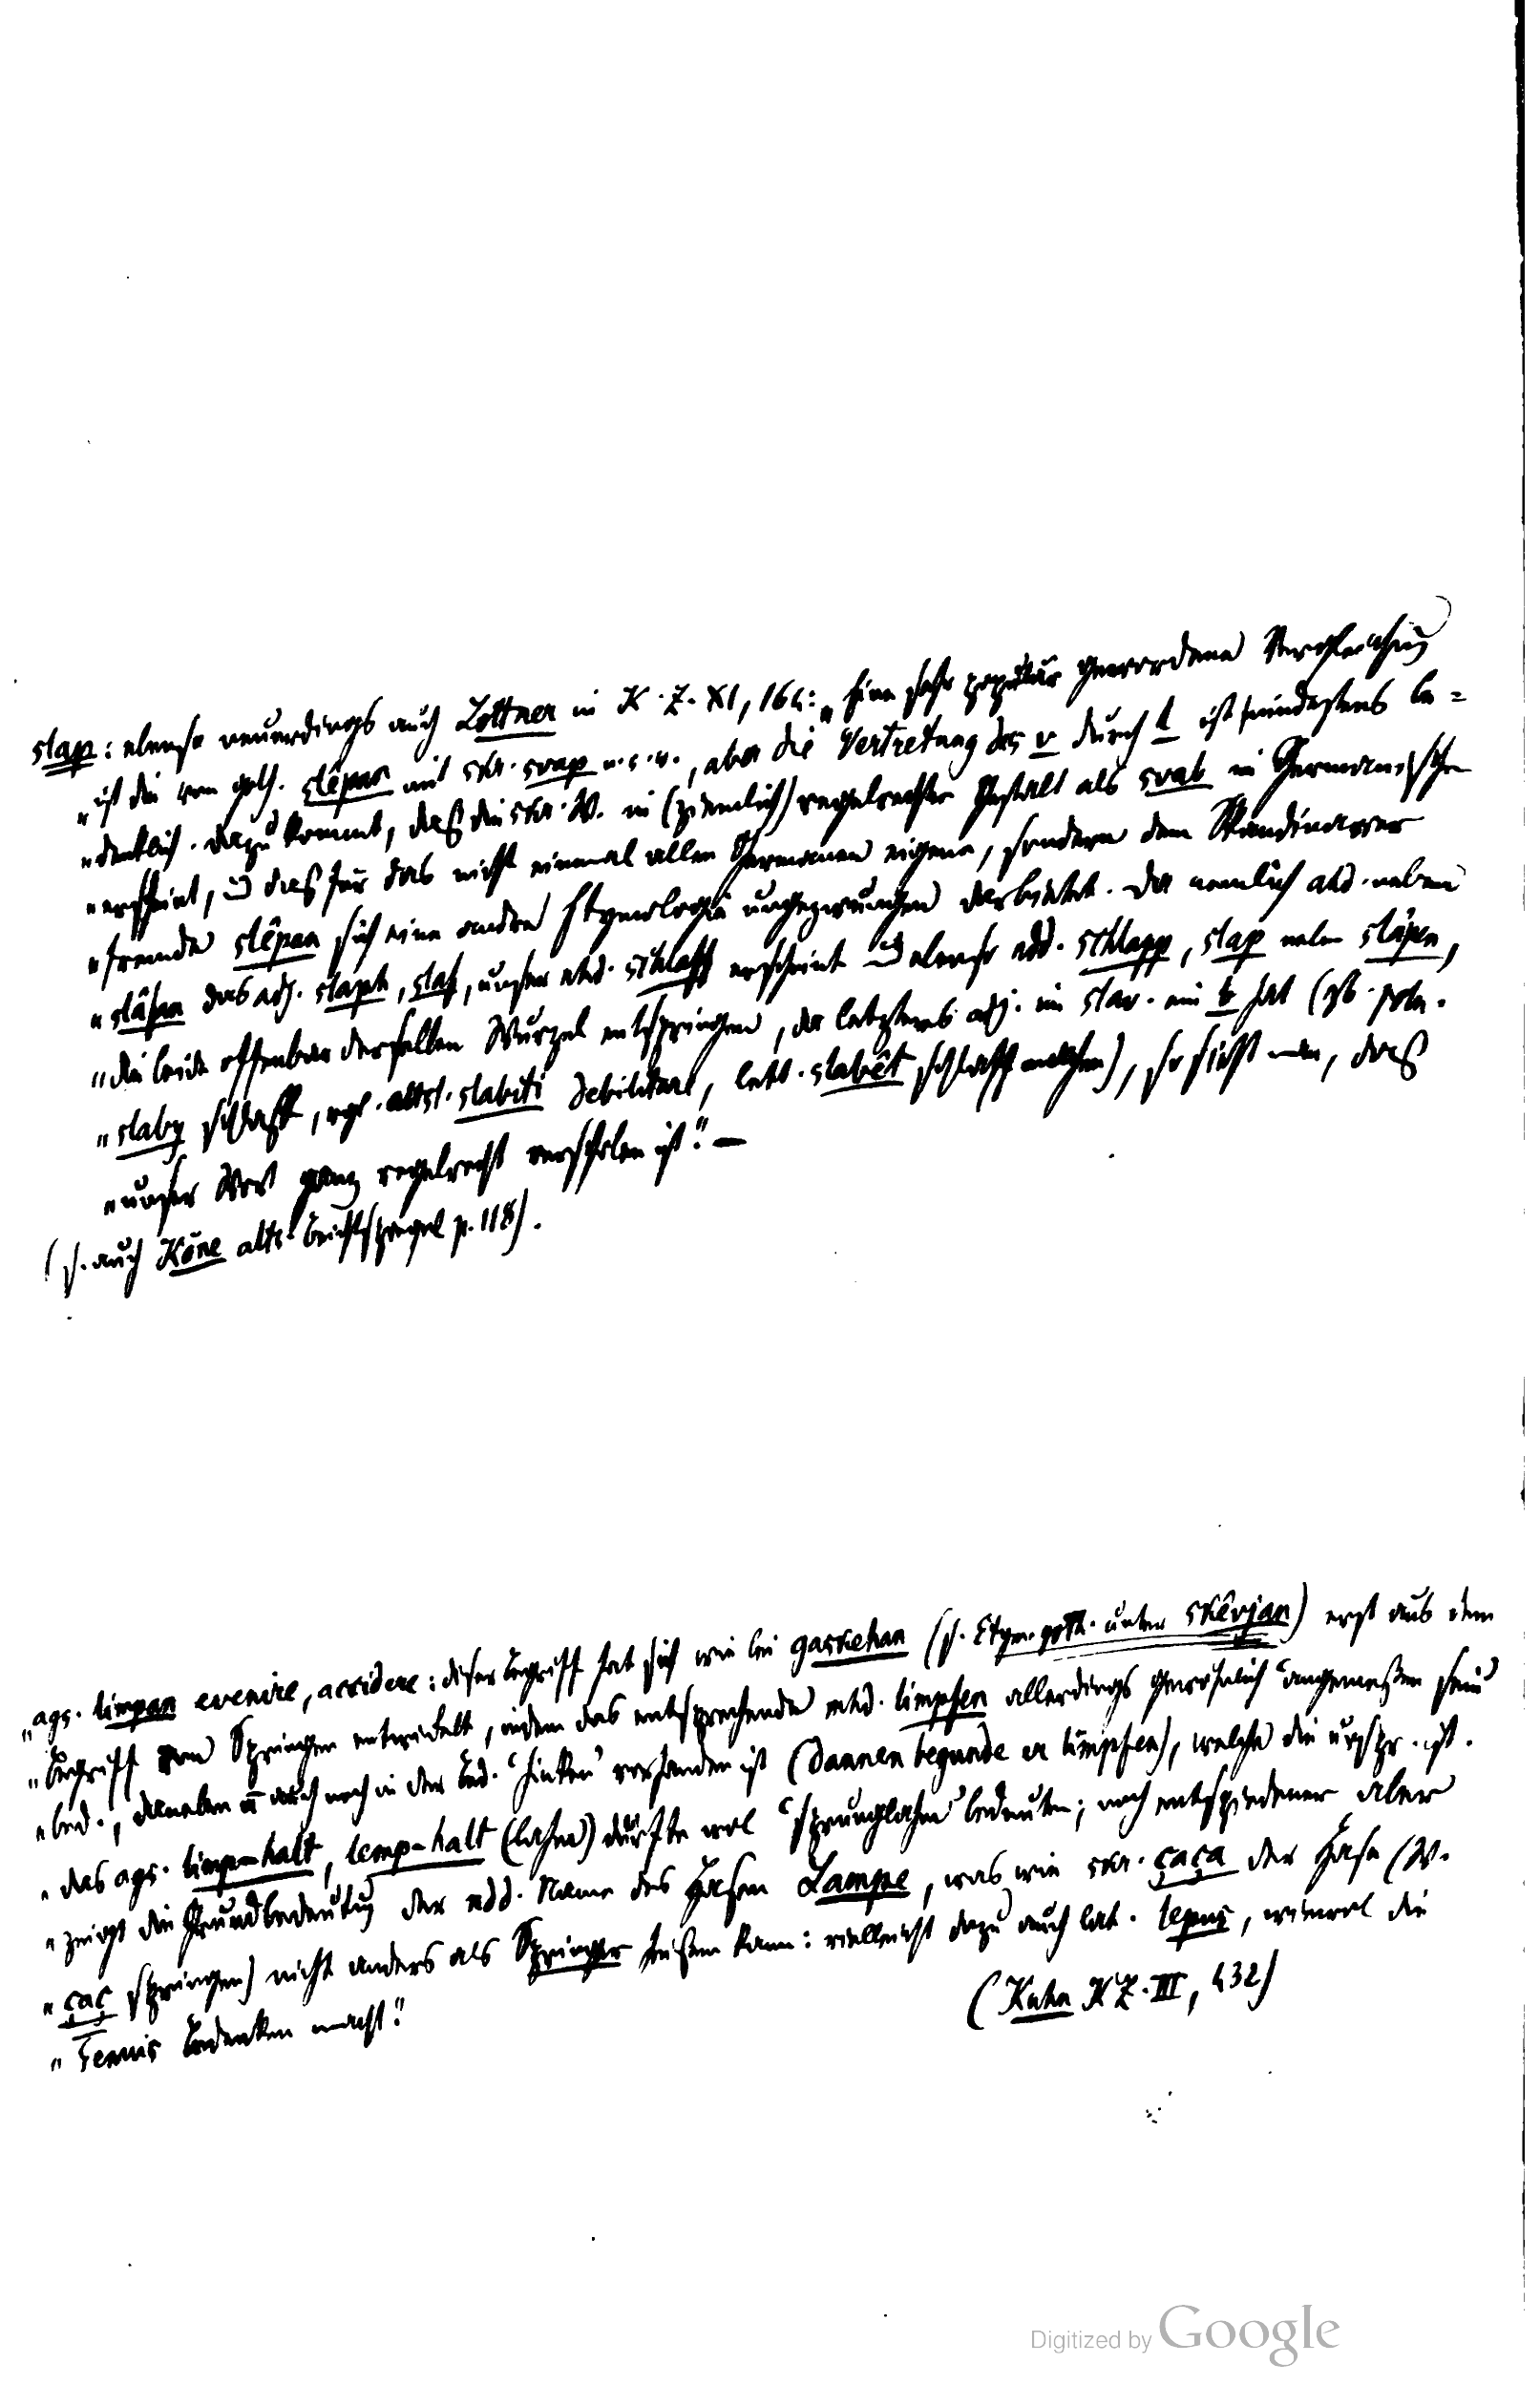 slap: ebenso neuerdings auch Lottner in K. Z. XI, 164: „Eine sehr populär gewordene Vergleichung
„ist die von goth. slêpan mit skr. svap u. s. w., aber die Vertretung des v durch l ist mindestens be=
„denklich. dazu kommt, daß die skr. W. in (ziemlich) regelrechter Gestalt als svab im Germanischen
„erscheint, u daß für das nicht einmal allen Germanen eigene, sondern dem Skandinaver
„fremde slêpan sich eine andre Etymologie ungezwungen darbietet. Da nemlich ahd. neben
„slâfan das adj. slaph, slaf, unser nhd. schlaff erscheint u ebenso ndd. schlapp, slap neben slâpen,
„die beide offenbar derselben Wurzel entspringen, da letzteres adj. im slav. ein b hat (zb. poln.
„slaby schlaff, vgl. altsl. slabiti debilitare, lett. slabêt schlaff machen), so sieht man, daß
„unser Wort ganz regelrecht verschoben ist." —
(s. auch Köne alts. Beichtspiegel p. 118).
„ags. limpan evenire, accidere: dieser Begriff hat sich wie bei gaskehan (s. Etym. goth. unter skêvjan) erst aus dem
„Begriff vom Springen entwickelt, indem das entsprechende mhd. limpfen allerdings gewöhnlich 'angemeßen sein'
„bed., daneben auch noch in der Bed. 'hinken' vorhanden ist (dannen begunde er limpfen), welche die urspr. ist.
„das ags. limp-halt, lemp-halt (lahm) dürfte wol 'sprunglahm' bedeuten; noch entschiedener aber
„zeigt die Grundbedeutung der ndd. Name des Hasen Lampe, was wie skr. çaça der Hase (W.
„çaç springen) nicht anders als Springer heißen kann: vielleicht dazu auch lat. lepus, wiewol die
„Tenuis Bedenken macht."
(Kuhn KZ. III, 432)
Digitized by Google